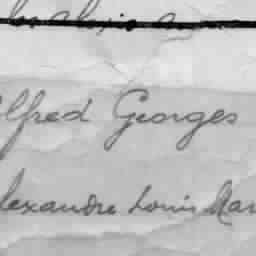 Alfred Georges
Alexandre Louis Mar